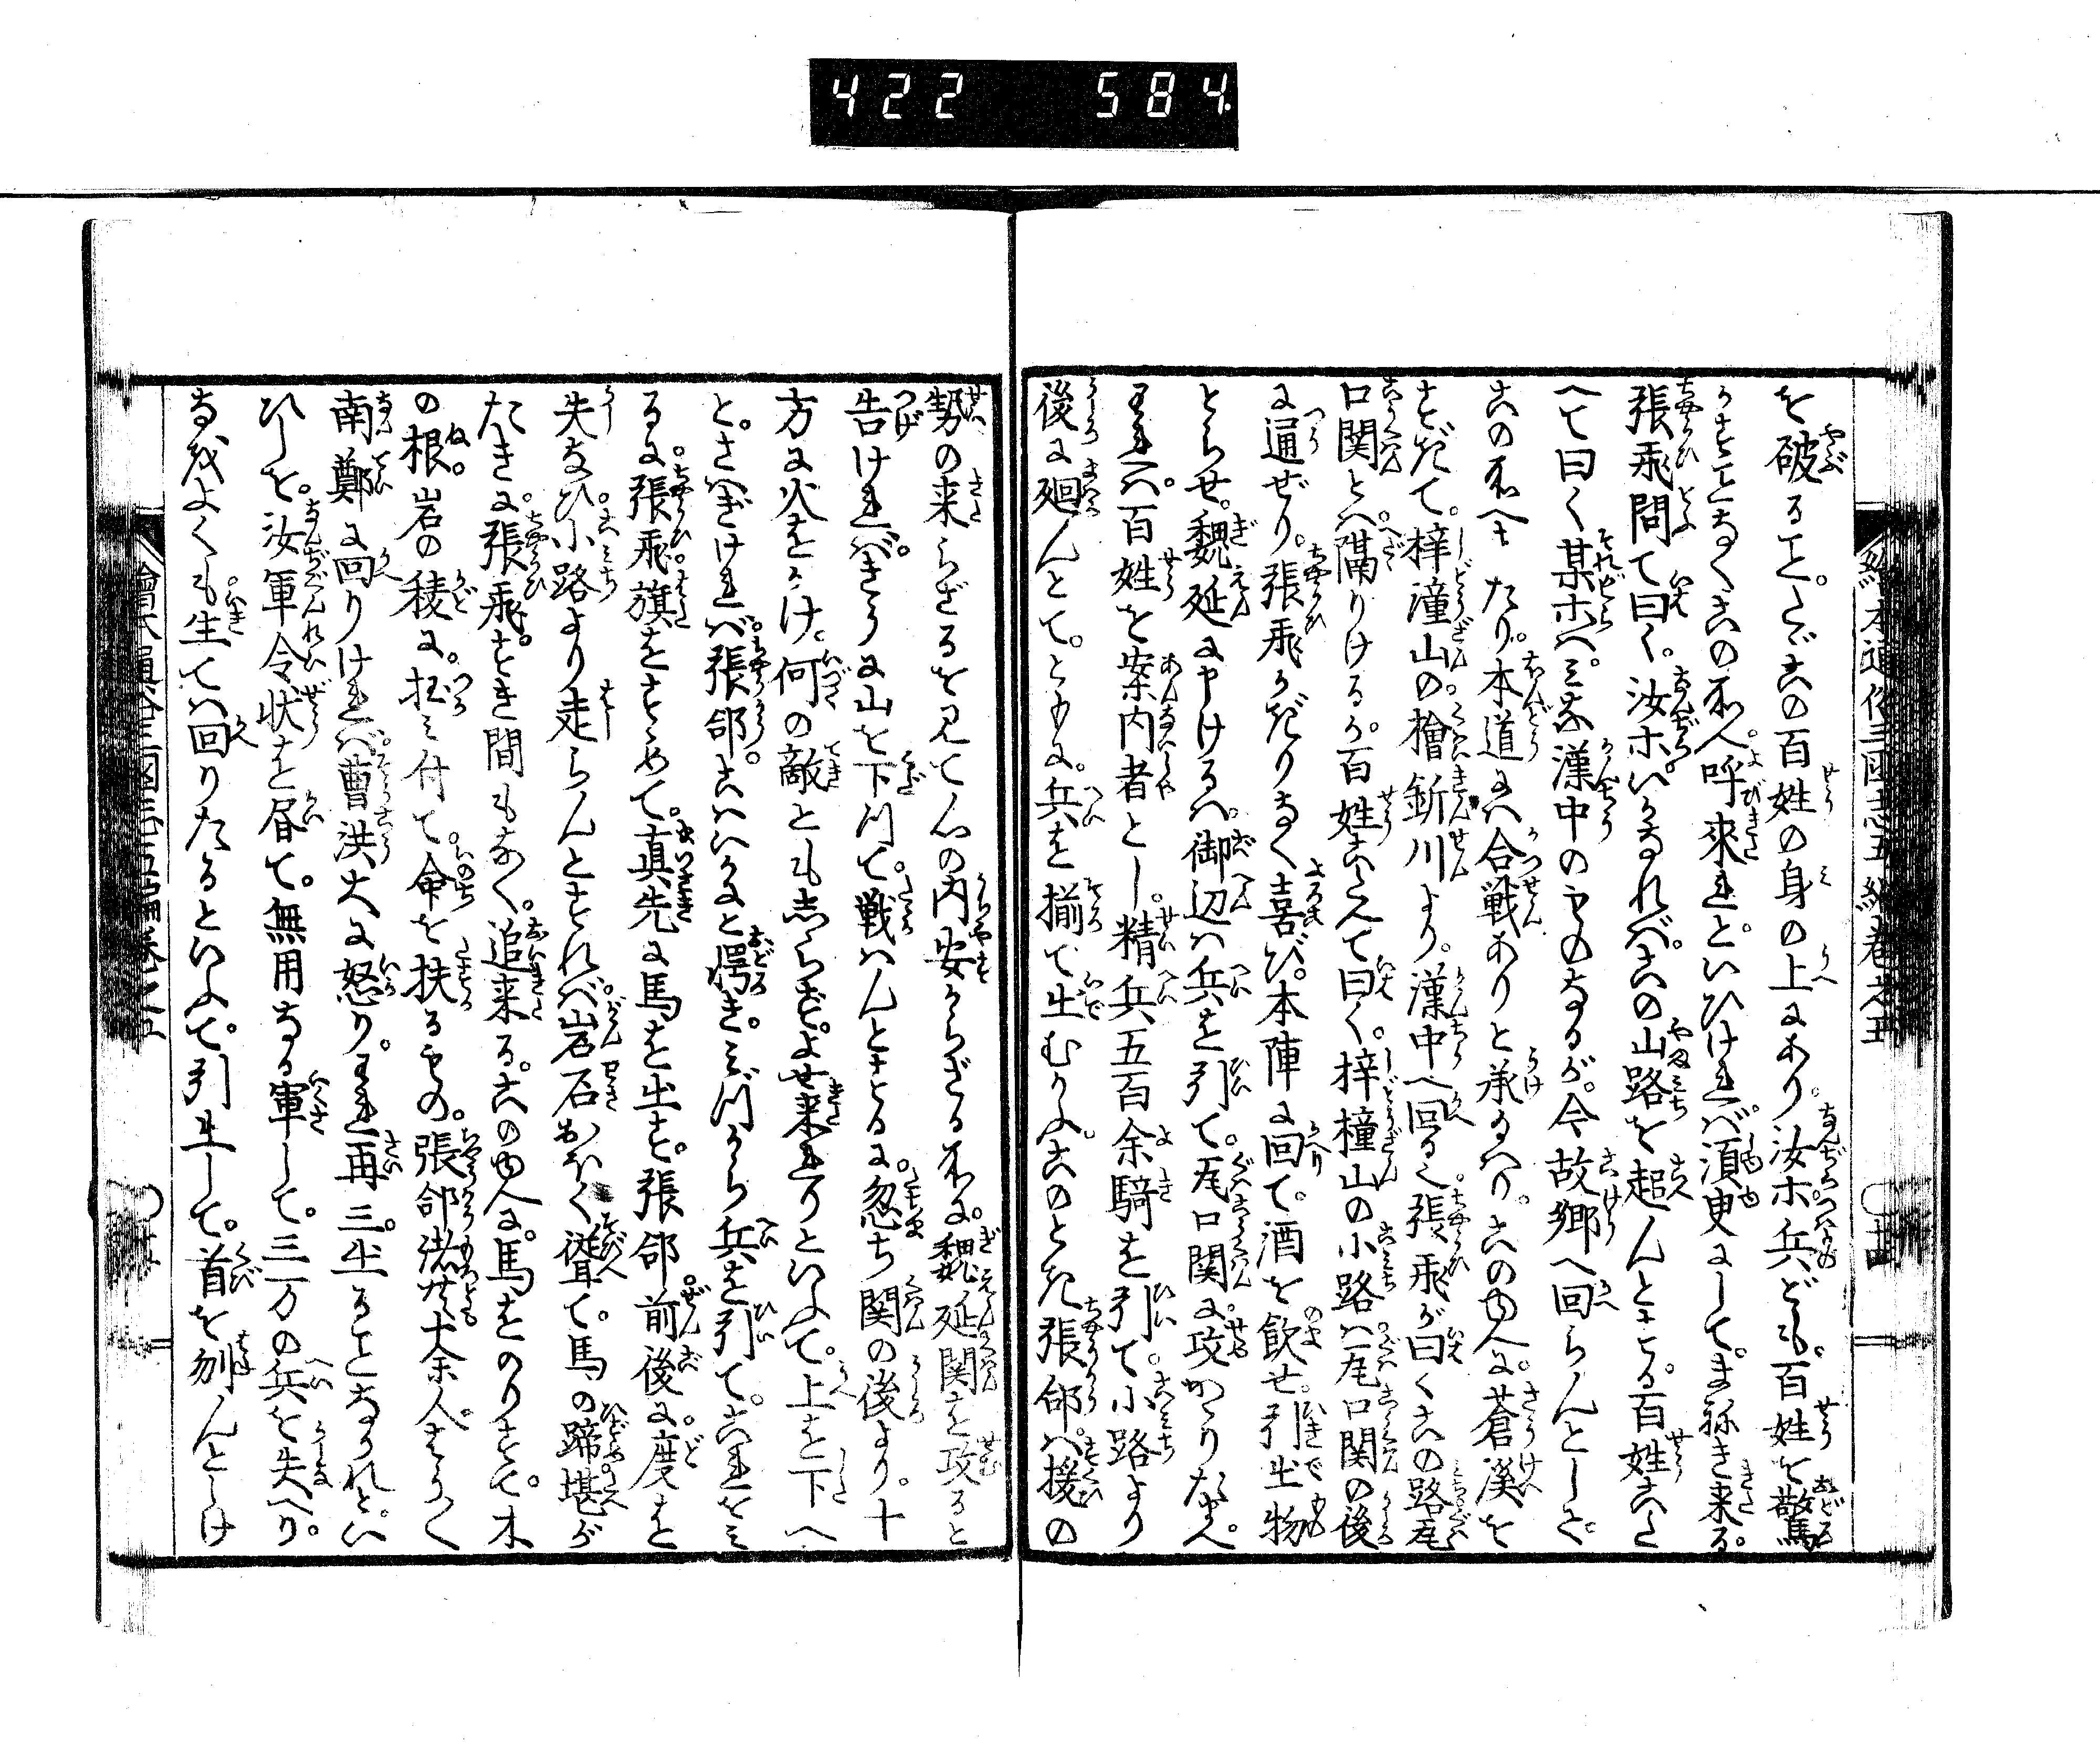 422 584
繪本通俗三國志五編巻之五
を破ること。たゞこの百姓の身の上にあり。汝ホ兵ども。百姓を驚
かすことなくこの所へ呼来れと。いひければ須臾にして。まねき来る。
張飛問て曰く。汝ホいかなれバ。この山路を超んとする。百姓こた
へて曰く某ホハ。ミな漢中のものなるが。今故郷へ回らんとして。
この所へ来たり。本道にハ合戦ありと承るゆへ。このゆへに。蒼溪を
すぎて。梓潼山の檜釿川より。漢中へ回る也。張飛が曰くこの路瓦
口関とハ隔りけるか。百姓こたへて曰く。梓橦山の小路ハ瓦口関の後
に通ぜり。張飛かぎりなく喜び。本陣に回て。酒を飲せ。引出物
とらせ。魏延に申けるハ。御辺ハ兵を引て。瓦口関に攻かゝり給へ。
われハ。百姓を案内者とし。精兵五百余騎を引て。小路より
後に廻んとて。ともに。兵を揃て出むかふ。このとき張郃ハ援の
勢の来らざるを見て心の内安からざる所に。魏延関を攻ると
告ければ。ぎうに山を下川て。戦ハんとするに。忽ち関の後より。十
方に火をかけ。何の敵とも志らず。よせ来れりといふて。上を下へ
と。さハぎければ。張郃。こハいかにと愕き。ミ川から兵を引て。これをミ
るに。張飛旗をすゝめて。真先に馬を出す。張郃前後に。度を
失なひ。小路より走らんとすれバ。岩石おほく聳て。馬の蹄堪が
たきに。張飛。すき間もなく。追来る。このゆへに。馬をのりすて。木
の根。岩の稜に。拄ミ付て。命を扶るもの。張郃諸共十余人。すゝんで
南鄭に回りければ。曹洪大に怒り。われ再三。出ることなかれと。い
ひしを。汝軍令状を昼て。無用なる軍して。三万の兵を失へり。
なをよくも生てハ回りたるといふて。引出して。首を刎んとしけ